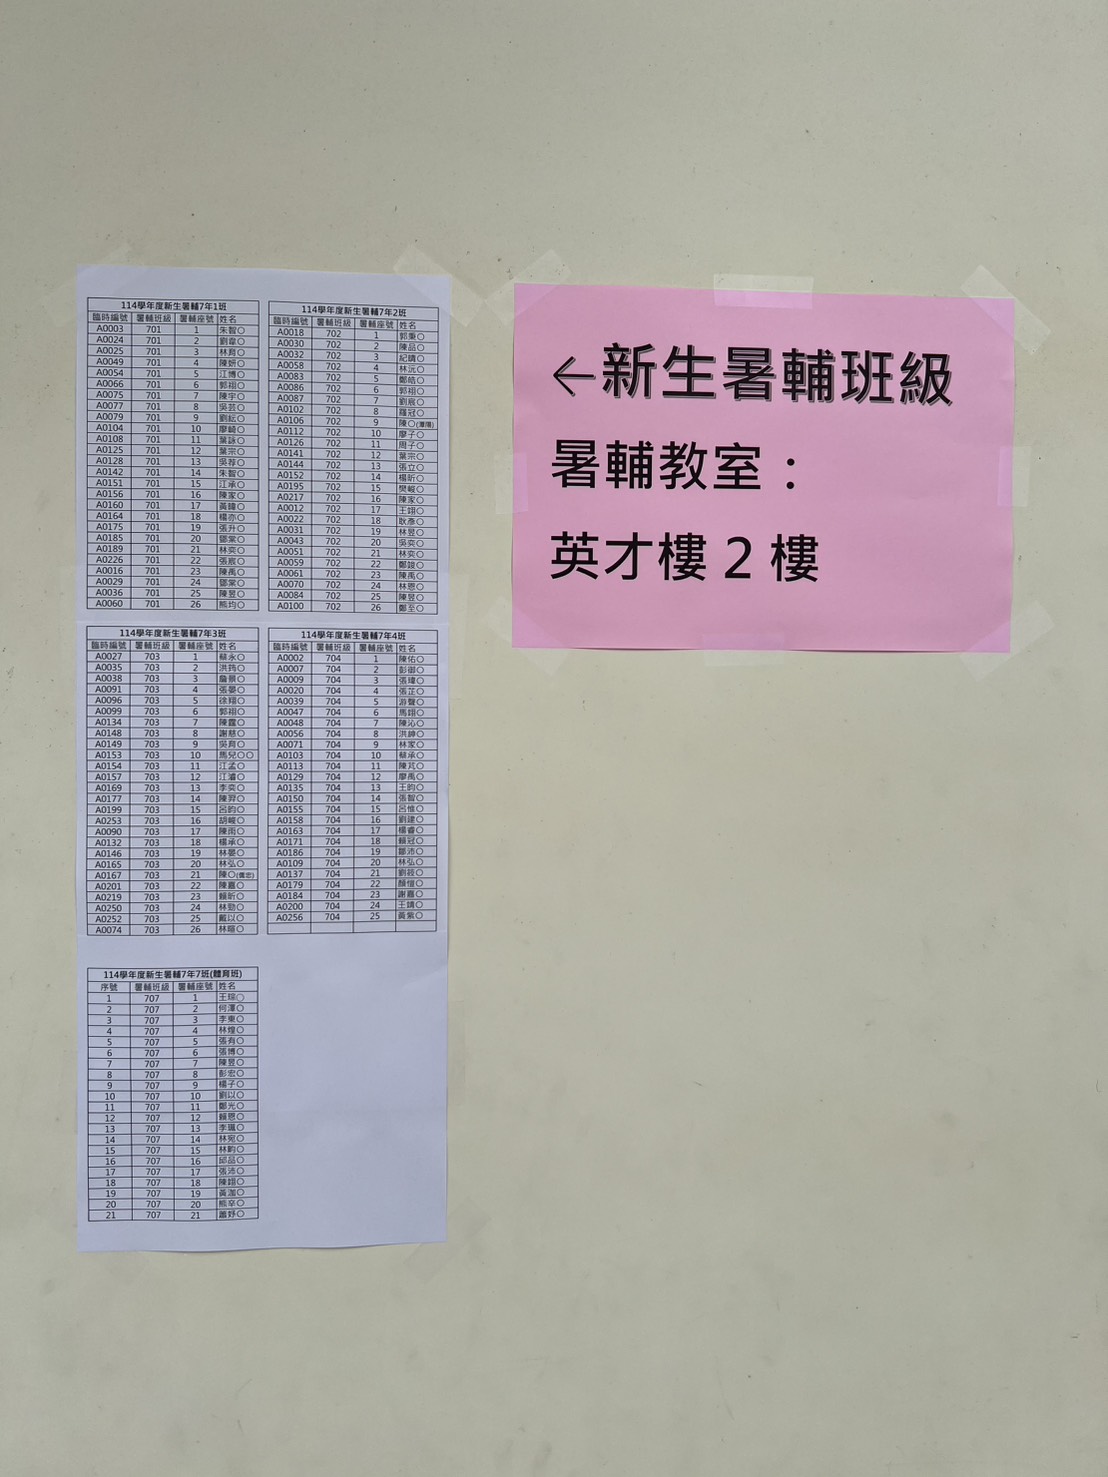 114學年度新生暑輔7年1班
臨時編號 暑輔班級 暑輔座號 姓名
A0003 701 1 朱智○
A0024 701 2 劉韋○
A0025 701 3 林育○
A0049 701 4 陳妍○
A0054 701 5 江博○
A0066 701 6 郭祤○
A0075 701 7 陳宇○
A0077 701 8 吳芸○
A0079 701 9 劉紜○
A0104 701 10 廖崎○
A0108 701 11 葉詠○
A0125 701 12 葉宗○
A0128 701 13 吳荐○
A0142 701 14 朱智○
A0151 701 15 江承○
A0156 701 16 陳家○
A0160 701 17 黃暐○
A0164 701 18 楊亦○
A0175 701 19 張升○
A0185 701 20 鄧棠○
A0189 701 21 林奕○
A0226 701 22 張宸○
A0016 701 23 陳禹○
A0029 701 24 鄧棠○
A0036 701 25 陳昱○
A0060 701 26 熊均○
114學年度新生暑輔7年2班
臨時編號 暑輔班級 暑輔座號 姓名
A0018 702 1 郭秉○
A0030 702 2 陳品○
A0032 702 3 紀晴○
A0058 702 4 林沅○
A0083 702 5 鄭皓○
A0086 702 6 郭祤○
A0087 702 7 劉宸○
A0102 702 8 羅冠○
A0106 702 9 陳○
A0112 702 10 廖子○
A0126 702 11 周子○
A0141 702 12 葉宗○
A0144 702 13 張立○
A0152 702 14 楊昕○
A0195 702 15 樊峻○
A0217 702 16 陳家○
A0012 702 17 王翊○
A0022 702 18 耿彥○
A0031 702 19 林昱○
A0043 702 20 吳奕○
A0051 702 21 林奕○
A0059 702 22 鄭竣○
A0061 702 23 陳禹○
A0070 702 24 林恩○
A0084 702 25 陳昱○
A0100 702 26 鄭至○
114學年度新生暑輔7年3班
臨時編號 暑輔班級 暑輔座號 姓名
A0027 703 1 蔡永○
A0035 703 2 洪筠○
A0038 703 3 詹景○
A0091 703 4 張晏○
A0096 703 5 徐翔○
A0099 703 6 郭栩○
A0134 703 7 陳霆○
A0148 703 8 謝慈○
A0149 703 9 吳育○
A0153 703 10 馬兒○○
A0154 703 11 江孟○
A0157 703 12 江濬○
A0169 703 13 李奕○
A0177 703 14 陳羿○
A0199 703 15 呂昀○
A0253 703 16 胡峻○
A0090 703 17 陳雨○
A0132 703 18 楊承○
A0146 703 19 林晏○
A0165 703 20 林弘○
A0167 703 21 陳○
A0201 703 22 陳嘉○
A0219 703 23 賴昕○
A0250 703 24 林勁○
A0252 703 25 戴以○
A0074 703 26 林暄○
114學年度新生暑輔7年4班
臨時編號 暑輔班級 暑輔座號 姓名
A0002 704 1 陳佑○
A0007 704 2 彭御○
A0009 704 3 張瑋○
A0020 704 4 張芷○
A0039 704 5 游聲○
A0047 704 6 馬翊○
A0048 704 7 陳沁○
A0056 704 8 洪紳○
A0071 704 9 林家○
A0103 704 10 蔡承○
A0113 704 11 陳芃○
A0129 704 12 廖禹○
A0135 704 13 王昀○
A0150 704 14 張智○
A0155 704 15 呂惟○
A0158 704 16 劉建○
A0163 704 17 楊睿○
A0171 704 18 賴冠○
A0186 704 19 鄒沛○
A0109 704 20 林弘○
A0137 704 21 劉筱○
A0179 704 22 顏愷○
A0184 704 23 謝嘉○
A0200 704 24 王靖○
A0256 704 25 黃紫○
114學年度新生暑輔7年7班(體育班)
序號 暑輔班級 暑輔座號 姓名
1 707 1 王琮○
2 707 2 何渾○
3 707 3 李東○
4 707 4 林煌○
5 707 5 張有○
6 707 6 張博○
7 707 7 陳昱○
8 707 8 彭宏○
9 707 9 楊子○
10 707 10 劉以○
11 707 11 鄭光○
12 707 12 賴恩○
13 707 13 李珮○
14 707 14 林宛○
15 707 15 林畇○
16 707 16 邱品○
17 707 17 張沛○
18 707 18 陳翊○
19 707 19 黃洳○
20 707 20 熊辛○
21 707 21 蕭妤○
←新生暑輔班級
暑輔教室：
英才樓2樓